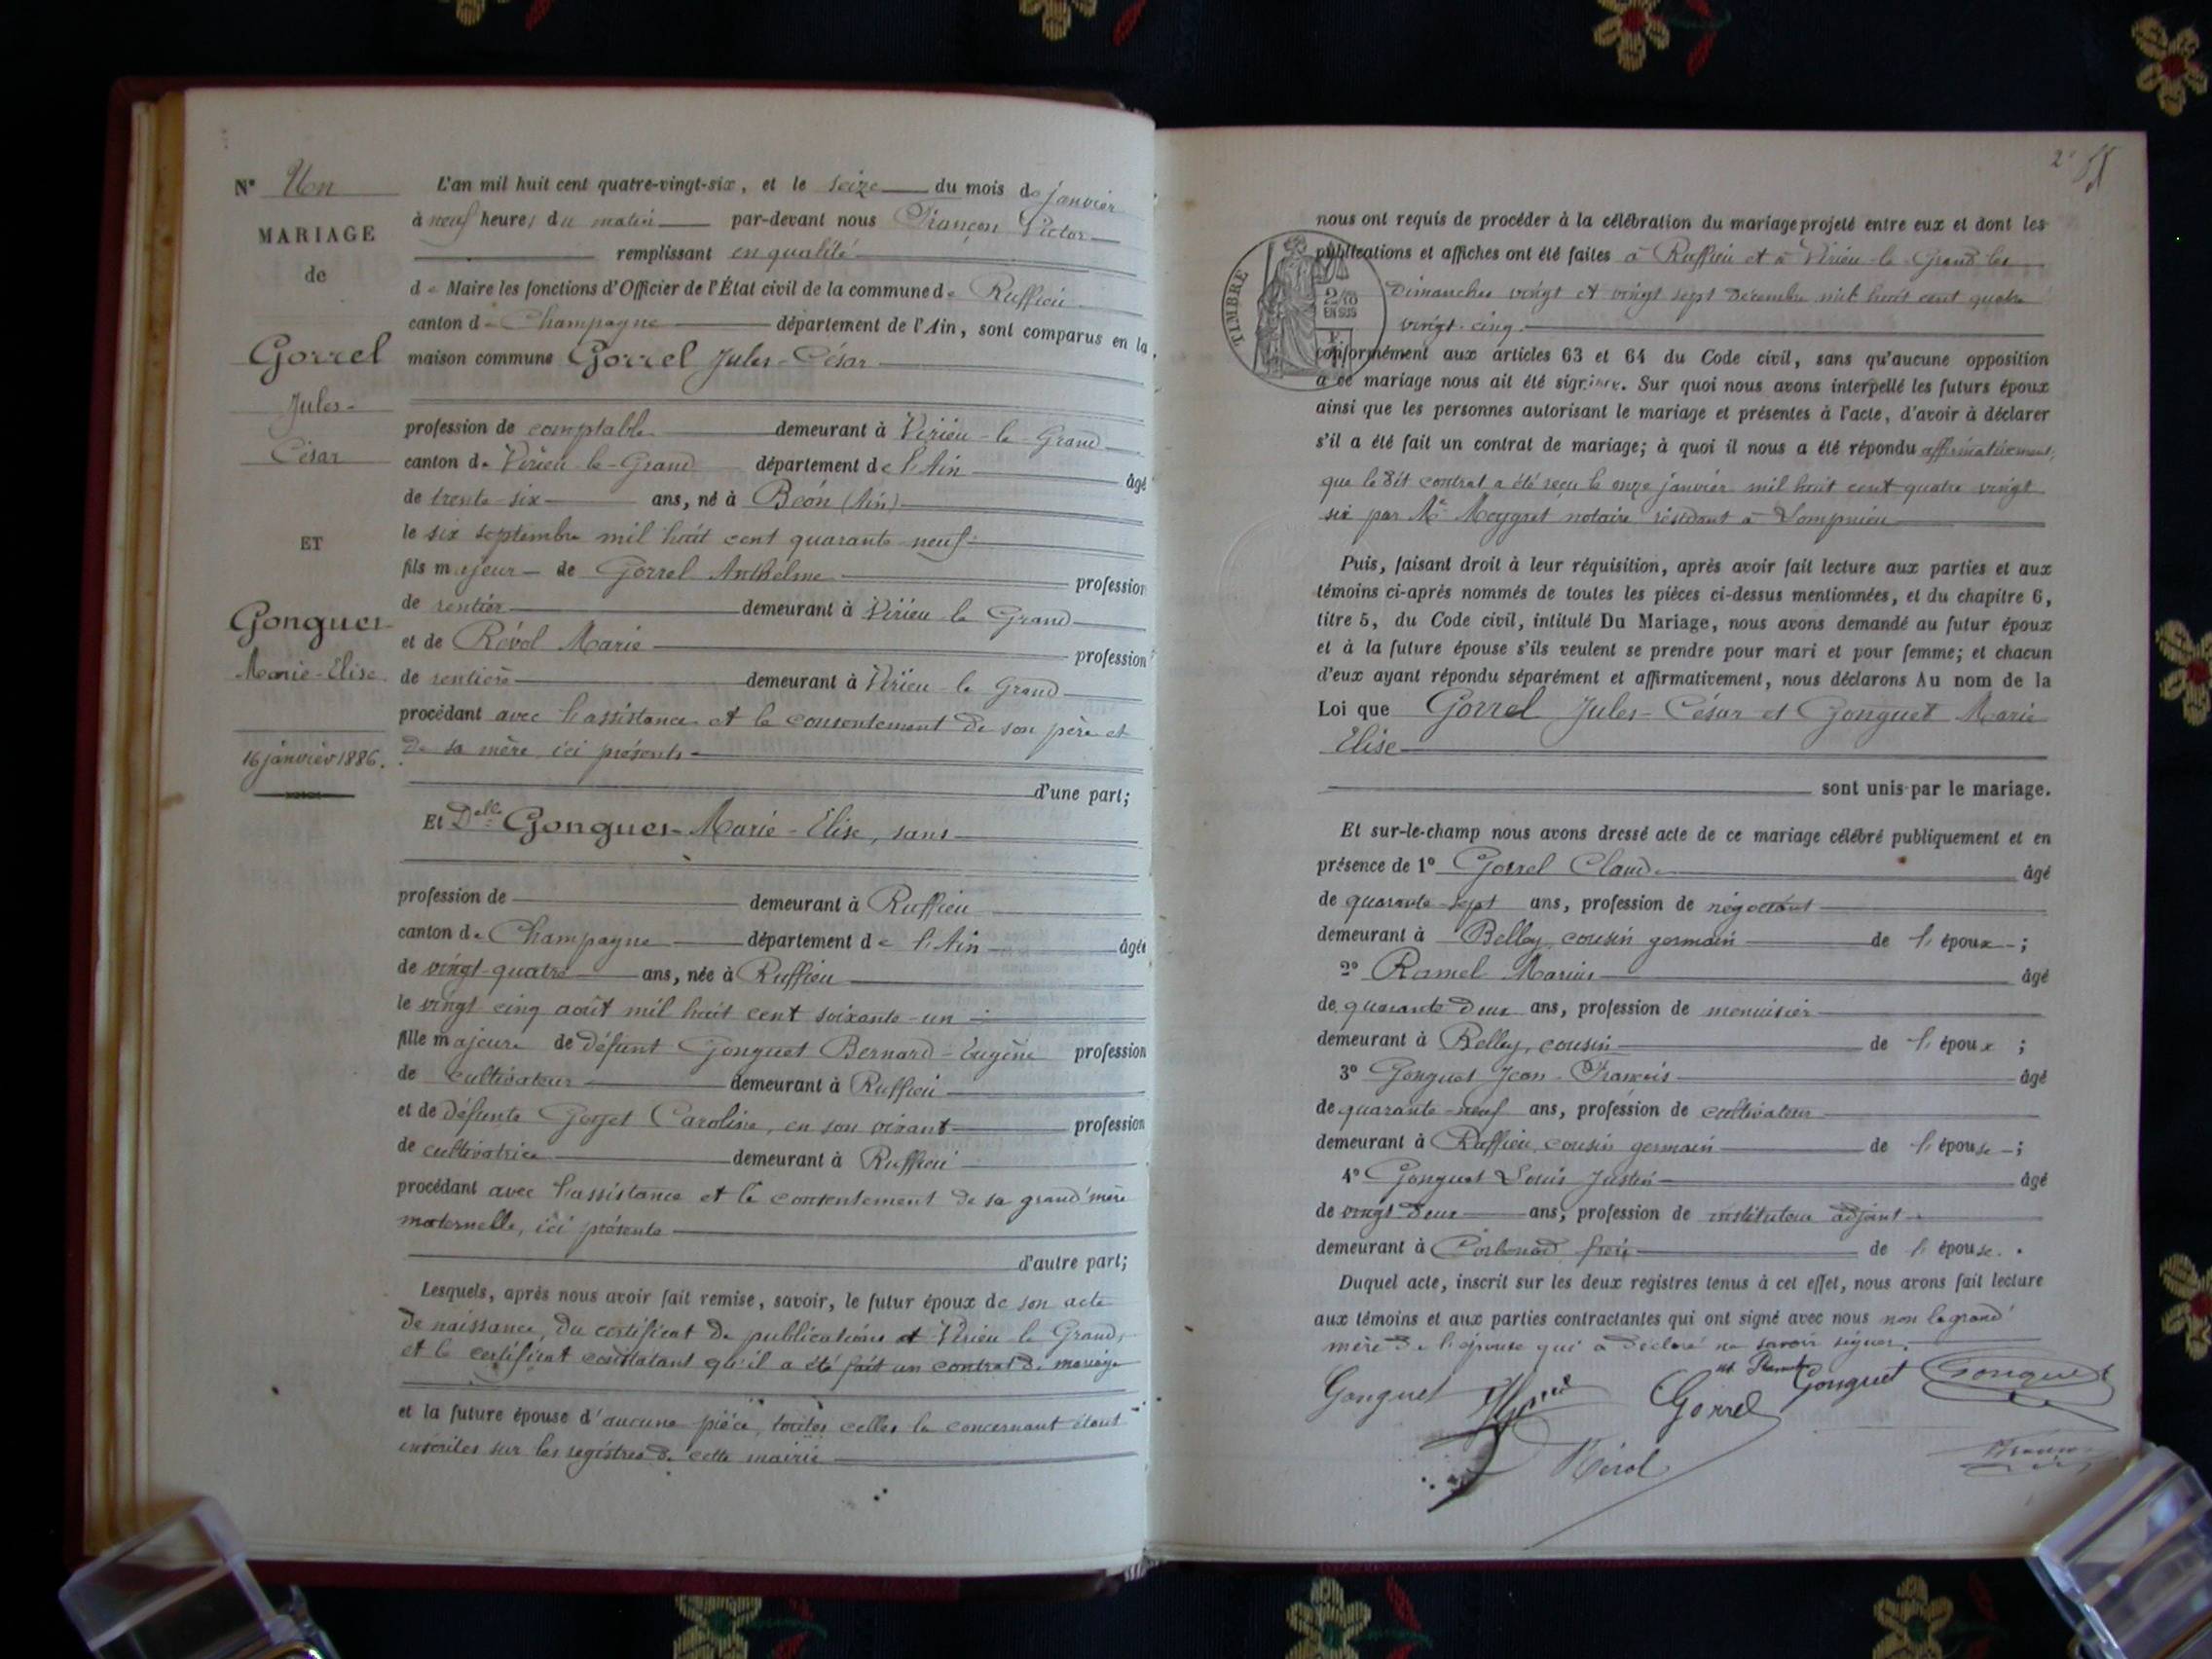 N° Un
MARIAGE
de
Gorrel
Jules-
César
ET
Gonguet
Marie-Elise
16 janvier 1886.
L'an mil huit cent quatre-vingt-six, et le seize du mois de janvier
à neuf heures du matin par-devant nous Françon Victor
remplissant en qualité
de Maire les fonctions d'Officier de l'État civil de la commune de Ruffieu
canton de Champagne département de l'Ain, sont comparus en la
maison commune Gorrel Jules-César
profession de comptable demeurant à Virieu-le-Grand
canton de Virieu-le-Grand département de l'Ain âgé
de trente-six ans, né à Béon (Ain)
le six septembre mil huit cent quarante-neuf
fils majeur de Gorrel Anthelme profession
de rentier demeurant à Virieu-le-Grand
et de Révol Marie profession
de rentière demeurant à Virieu-le-Grand
procédant avec l'assistance et le consentement de son père et
de sa mère, ici présents
d'une part;
Et Delle Gonguet Marie-Elise, sans
profession de demeurant à Ruffieu
canton de Champagne département de l'Ain âgée
de vingt-quatre ans, née à Ruffieu
le vingt cinq août mil huit cent soixante-un
fille majeure de défunt Gonguet Bernard-Eugène profession
de cultivateur demeurant à Ruffieu
et de défunte Gojet Caroline, en son vivant profession
de cultivatrice demeurant à Ruffieu
procédant avec l'assistance et le consentement de sa grand'mère
maternelle, ici présente
d'autre part;
Lesquels, après nous avoir fait remise, savoir, le futur époux de son acte
de naissance, du certificat de publications et Virieu le Grand,
et le certificat constatant qu'il a été fait un contrat de mariage
et la future épouse d'aucune pièce, toutes celles la concernant étant
inscrites sur les registres de cette mairie
2e
TIMBRE
2/10
EN SUS
nous ont requis de procéder à la célébration du mariage projeté entre eux et dont les
publications et affiches ont été faites à Ruffieu et à Virieu-le-Grand les
dimanches vingt et vingt sept décembre mil huit cent quatre
vingt-cinq.
conformément aux articles 63 et 64 du Code civil, sans qu'aucune opposition
à ce mariage nous ait été signifiée. Sur quoi nous avons interpellé les futurs époux
ainsi que les personnes autorisant le mariage et présentes à l'acte, d'avoir à déclarer
s'il a été fait un contrat de mariage; à quoi il nous a été répondu affirmativement,
que le dit contrat a été reçu le onze janvier mil huit cent quatre vingt
six par Me Meygret notaire résidant à Lompnieu
Puis, faisant droit à leur réquisition, après avoir fait lecture aux parties et aux
témoins ci-après nommés de toutes les pièces ci-dessus mentionnées, et du chapitre 6,
titre 5, du Code civil, intitulé Du Mariage, nous avons demandé au futur époux
et à la future épouse s'ils veulent se prendre pour mari et pour femme; et chacun
d'eux ayant répondu séparément et affirmativement, nous déclarons Au nom de la
Loi que Gorrel Jules-César et Gonguet Marie
Elise
sont unis par le mariage.
Et sur-le-champ nous avons dressé acte de ce mariage célébré publiquement et en
présence de 1° Gorrel Claude âgé
de quarante-sept ans, profession de négociant
demeurant à Belley, cousin germain de l'époux;
2° Ramel Marius âgé
de quarante deux ans, profession de menuisier
demeurant à Belley, cousin de l'époux;
3° Gonguet Jean-François âgé
de quarante-neuf ans, profession de cultivateur
demeurant à Ruffieu, cousin germain de l'épouse;
4° Gonguet Louis Justin âgé
de vingt deux ans, profession de instituteur adjoint
demeurant à Corbonod frère de l'épouse.
Duquel acte, inscrit sur les deux registres tenus à cet effet, nous avons fait lecture
aux témoins et aux parties contractantes qui ont signé avec nous non la grand'
mère de l'épouse qui a déclaré ne savoir signer.
Gonguet Gorrel Gonguet Gonguet
Révol